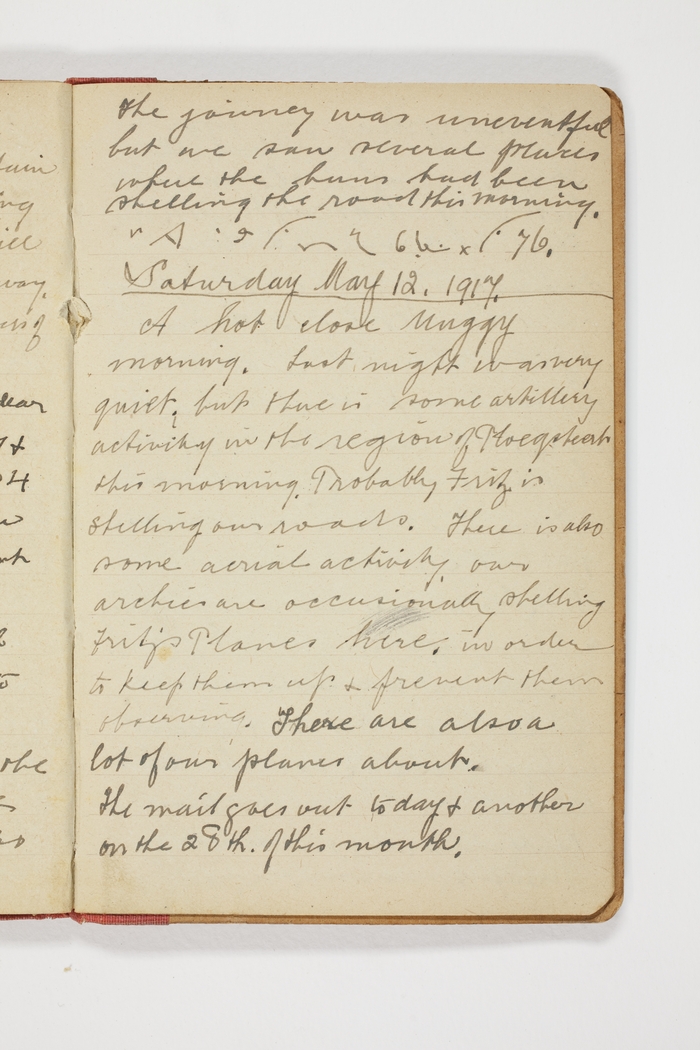 the journey was uneventful
but we saw several places
where the huns had been
shelling the road this morning.
66. x 76.
Saturday May 12. 1917.
A hot close muggy
morning. Last night was very
quiet, but there is some artillery
activity in the region of Ploegsteert
this morning. Probably Fritz is
shelling our roads. There is also
some aerial activity our
archies are occasionally shelling
Fritz's Planes here, in order
to keep them up & prevent them
observing. There are also a
lot of our planes about.
The mail goes out today & another
on the 28th. of this month.